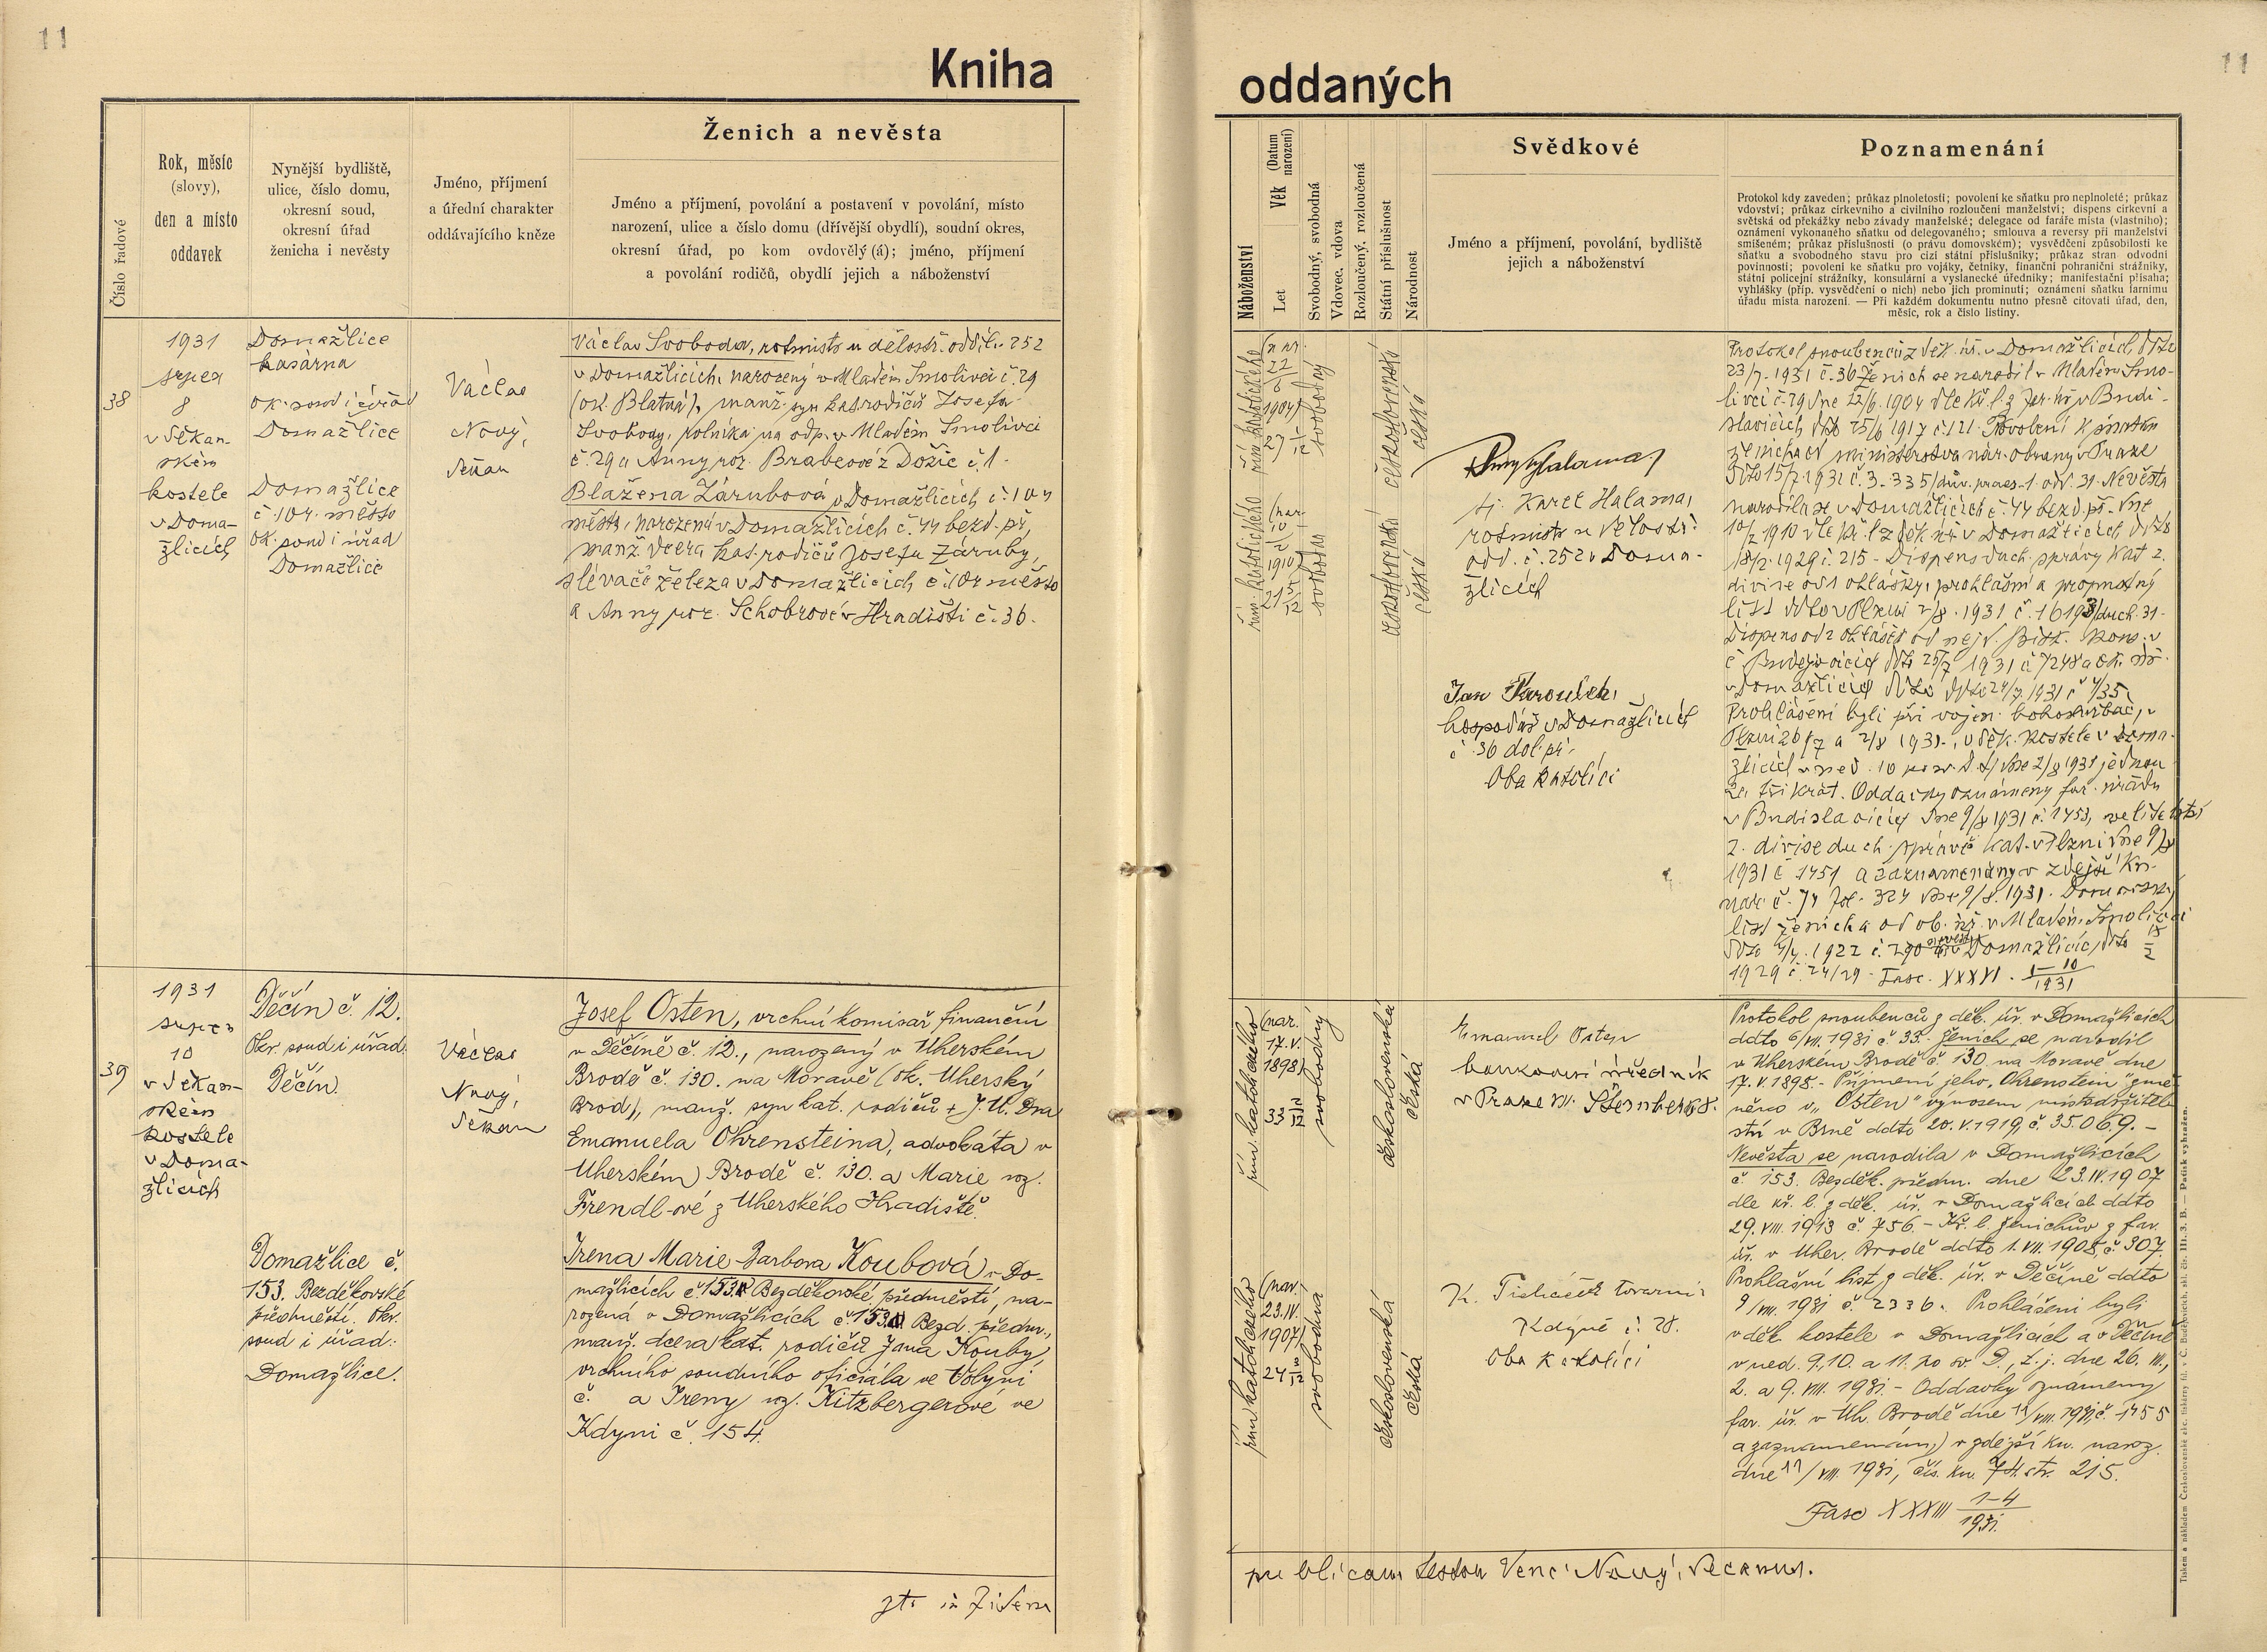 11
Kniha
Ženich a nevěsta
Číslo řadové
Rok, měsíc
(slovy),
den a místo
oddavek
Nynější bydliště,
ulice, číslo domu,
okresní soud,
okresní úřad
ženicha i nevěsty
Jméno, příjmení
a úřední charakter
oddávajícího kněze
Jméno a příjmení, povolání a postavení v povolání, místo
narození, ulice a číslo domu (dřívější obydlí), soudní okres,
okresní úřad, po kom ovdovělý (á); jméno, příjmení
a povolání rodičů, obydlí jejich a náboženství
38
1931
srpen
8
v děkan-
ském
kostele
v Doma-
žlicích
Domažlice
kasárna
ok. soud i úřad
Domažlice
Domažlice
č. 104 město
ok. soud i úřad
Domažlice
Václav
Nový,
děkan
Václav Svoboda, rotmistr u dělostř. oddíl. 252
v Domažlicích, narozený v Mladém Smolivci č. 29
(ok. Blatná), manž. syn kat. rodičů Josefa
Svobody, rolníka na odp. v Mladém Smolivci
č. 29 a Anny roz. Brabcové z Dožic č. 1.
Blažena Zárubová v Domažlicích č. 104
město, narozená v Domažlicích č. 44 bezd. př.,
manž. dcera kat. rodičů Josefa Záruby,
slévače železa v Domažlicích č. 104 město
a Anny roz. Schobrové v Hradišti č. 36.
39
1931
srpen
10
v děkan-
ském
kostele
v Doma-
žlicích
Děčín č. 12.
Okr. soud i úřad
Děčín.
Domažlice č.
153. Bezděkovské
předměstí. Okr.
soud i úřad:
Domažlice.
Václav
Nový,
děkan
Josef Osten, vrchní komisař finanční
v Děčíně č. 12., narozený v Uherském
Brodě č. 130. na Moravě (ok. Uherský
Brod), manž. syn kat. rodičů + J. U. Dra
Emanuela Ohrensteina, advokáta v
Uherském Brodě č. 130. a Marie roz.
Frendl-ové z Uherského Hradiště.
Irena Marie Barbora Koubová v Do-
mažlicích č. 153. Bezděkovské předměstí, na-
rozená v Domažlicích č. 153. Bezd. předm.,
manž. dcera kat. rodičů Jana Kouby,
vrchního soudního oficiála ve Volyni
č. a Ireny roz. Kitzbergerové ve
Kdyni č. 154.
11
oddaných
Náboženství
Věk (Datum narození)
Let
Svobodný, svobodná
Vdovec, vdova
Rozloučený, rozloučená
Státní příslušnost
Národnost
Svědkové
Jméno a příjmení, povolání, bydliště
jejich a náboženství
Poznamenání
Protokol kdy zaveden; průkaz plnoletosti; povolení ke sňatku pro neplnoleté; průkaz
vdovství; průkaz církevního a civilního rozloučení manželství; dispens církevní a
světská od překážky nebo závady manželské; delegace od faráře místa (vlastního);
oznámení vykonaného sňatku od delegovaného; smlouva a reversy při manželství
smíšeném; průkaz příslušnosti (o právu domovském); vysvědčení způsobilosti ke
sňatku a svobodného stavu pro cizí státní příslušníky; průkaz stran odvodní
povinnosti; povolení ke sňatku pro vojáky, četníky, finanční pohraniční strážníky,
státní policejní strážníky, konsulární a vyslanecké úředníky; manifestační přísaha;
vyhlášky (příp. vysvědčení o nich) nebo jich prominutí; oznámení sňatku farnímu
úřadu místa narození. — Při každém dokumentu nutno přesně citovati úřad, den,
měsíc, rok a číslo listiny.
řím. katolického
22/6
1904)
27 1/12
svobodný
československá
česká
řím. katolického
(nar.
1910)
21 5/12
svobodna
československá
česká
tj. Karel Halama,
rotmistr u dělostř.
odd. č. 252 v Doma-
žlicích
Jan
hospodář v Domažlicích
č. 36 dol. př.
Oba katolíci
Protokol snoubenců z děk. úř. v Domažlicích ddto
23/7. 1931 č. 36. Ženich se narodil v Mladém Smo-
livci č. 29 dne 22/6. 1904 dle kř. l. z far. úř. v Budi-
slavicích ddto 25/6 1917 č. 121. Povolení k sňatku
ženicha od ministerstva nár. obrany v Praze
ddto 15/7. 1931 č. 3.335/dův. praes. 1. odd. 31. Nevěsta
narodila se v Domažlicích č. 44 bezd. př. dne
10/2 1910 dle kř. l. z děk. úř. v Domažlicích ddto
18/2. 1929 č. 215 - Dispens duch. správy kat. 2.
divise od 1 ohlášky, prohlašní a propustný
list ddto v Plzni 2/8. 1931 č. 1619/duch. 31.
Dispens od 2 ohlášek od nejd. bisk. kons. v
Č. Budějovicích ddto 25/7 1931 č. 7248 a ok. úř.
v Domažlicích ddto 24/7. 1931 č. 4/35,
Prohlášeni byli při vojen. bohoslužbách v
Plzni 26/7 a 2/8 1931., v děk. kostele v Doma-
žlicích v ned. 10 po sv. D. t. j. dne 2/8 1931 jednou
za třikrát. Oddavky oznámeny far. úřadu
v Budislavicích dne 9/8 1931 č. 1453, velitelství
2. divise duch. správě kat. v Plzni dne 9/8
1931 č. 1451 a zaznamenány v zdejší kn.
nar. č. 74 fol. 324 dne 9/8. 1931. Domovský
list ženicha od ob. úř. v Mladém Smolivci
ddto 4/7. 1922 č. 290 nevěsty úř. v Domažlicích ddto 15/2
1929 č. 24/29 - Fasc. XXXVI. 1-10/1931
řím. katolického
(nar.
17.V.
1898)
33 2/12
svobodný
československá
česká
řím. katolického
(nar.
23.IV.
1907)
24
svobodná
československá
česká
Emanuel Osten
bankovní úředník
v Praze VII.
K. továrník
Kdyně č. 28.
Oba katolíci
Protokol snoubenců z děk. úř. v Domažlicích
ddto 6/VII. 1931 č. 33. Ženich se narodil
v Uherském Brodě č. 130 na Moravě dne
17. V. 1898. - Příjmení jeho „Ohrenstein" změ-
něno v „Osten" výnosem místodržitel-
ství v Brně ddto 20. V. 1919, č. 35.069. -
Nevěsta se narodila v Domažlicích
č 153. Bezděk. předm. dne 23.IV.1907
dle kř. l. z děk. úř. v Domažlicích ddto
29. VIII. 1913 č. 756. - Kř. l. ženichův z far.
úř. v Uher. Brodě ddto 1. VII. 1908, č. 307.
Prohlašní list z děk. úř. v Děčíně ddto
9/VIII. 1931 č. 2336. Prohlášeni byli
v děk. kostele v Domažlicích a v Děčíně
v ned. 9. 10. a 11. po sv. D., t. j. dne 26. VII.,
2. a 9. VIII. 1931. - Oddavky oznámeny
far. úř. v Uh. Brodě dne 11/VIII. 1931, č. 1455
a zaznamenány v zdejší kn. naroz.
dne 11/VIII. 1931, čís. kn. 74. str. 215.
Fasc XXXIII 1-4/1931.
publicam testor Venc. Nový, decanus.
Tiskem a nákladem Československé akc. tiskárny fil. v Č. Budějovicích, skl. čís. III. 3. B. — Patisk vyhražen.